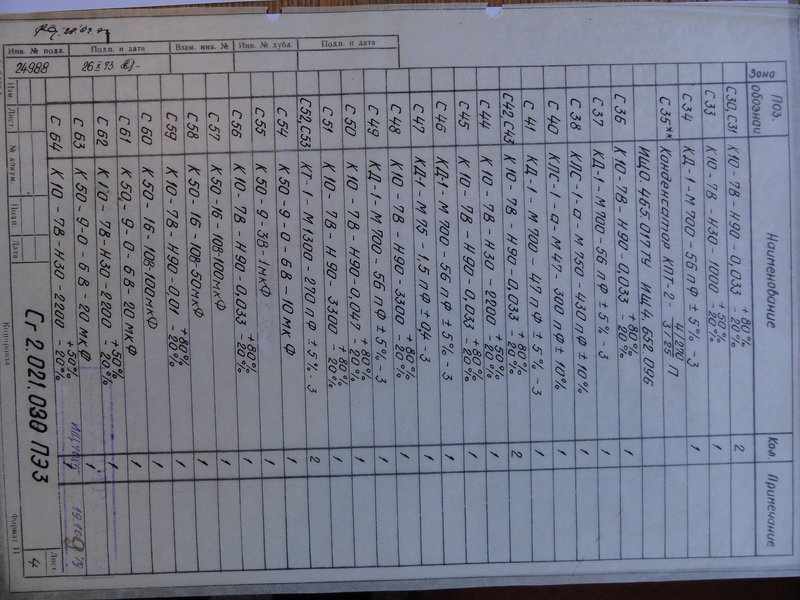 Зона
Поз. обознач
Наименование
Кол
Примечание
+80%
С30,С31 К10-7В-Н90-0,033 -20% 2
+50%
С33 К10-7В-Н30-1000 -20% 1
С34 КД-1-М700-56пФ±5%-3 1
С35** Конденсатор КПТ-2- 4/270 3/25 П
ИЩ0.465.017ТУ ИЩ4.652.096
+80%
С36 К10-7В-Н90-0,033 -20% 1
С37 КД-1-М700-56пФ±5%-3 1
С38 КЛС-1-а-М750-430пФ±10% 1
С40 КЛС-1-а-М47-300пФ±10% 1
С41 КД-1-М700-47пФ±5%-3 1
+80%
С42,С43 К10-7В-Н90-0,033 -20% 2
+50%
С44 К10-7В-Н30-2200 -20% 1
+80%
С45 К10-7В-Н90-0,033 -20% 1
С46 КД-1-М700-56пФ±5%-3 1
С47 КД-1-М75-1,5пФ±0,4-3 1
+80%
С48 К10-7В-Н90-3300 -20% 1
С49 КД-1-М700-56пФ±5%-3 1
+80%
С50 К10-7В-Н90-0,047 -20% 1
+80%
С51 К10-7В-Н90-3300 -20% 1
С52,С53 КТ-1-М1300-270пФ±5%-3 2
С54 К50-9-0-6В-10мкФ 1
С55 К50-9-3В-1мкФ 1
+80%
С56 К10-7В-Н90-0,033 -20% 1
С57 К50-16-10В-100мкФ 1
С58 К50-16-10В-50мкФ 1
+80%
С59 К10-7В-Н90-0,01 -20% 1
С60 К50-16-10В-100мкФ 1
С61 К50-9-0-6В-20мкФ 1
+50%
С62 К10-7В-Н30-2200 -20% 1
С63 К50-9-0-6В-20мкФ 1
+50%
С64 К10-7В-Н30-2200 -20% 1
Изм Лист № докум. Подп. Дата
Сг2.021.030 ПЭ3
Лист.
4
Копировал
Формат 11
Инв. № подл. Подп. и дата Взам. инв. № Инв. № дубл. Подп. и дата
24988 26 X 73